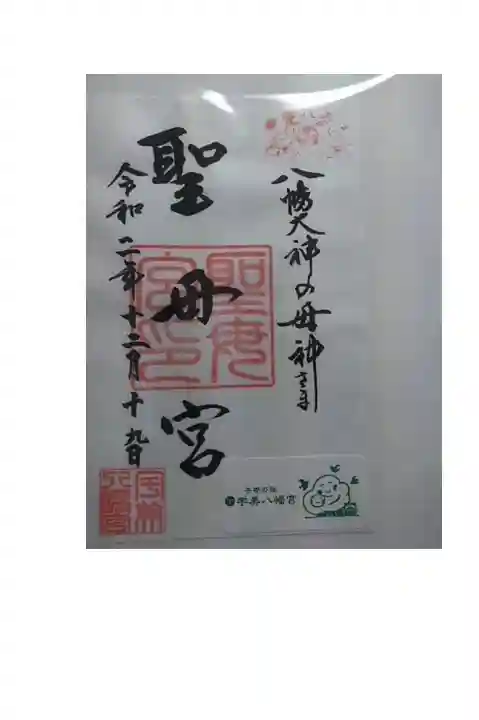 八幡大神の母神さま
聖母宮
聖母宮印
令和二年十二月十九日
宇美八幡宮